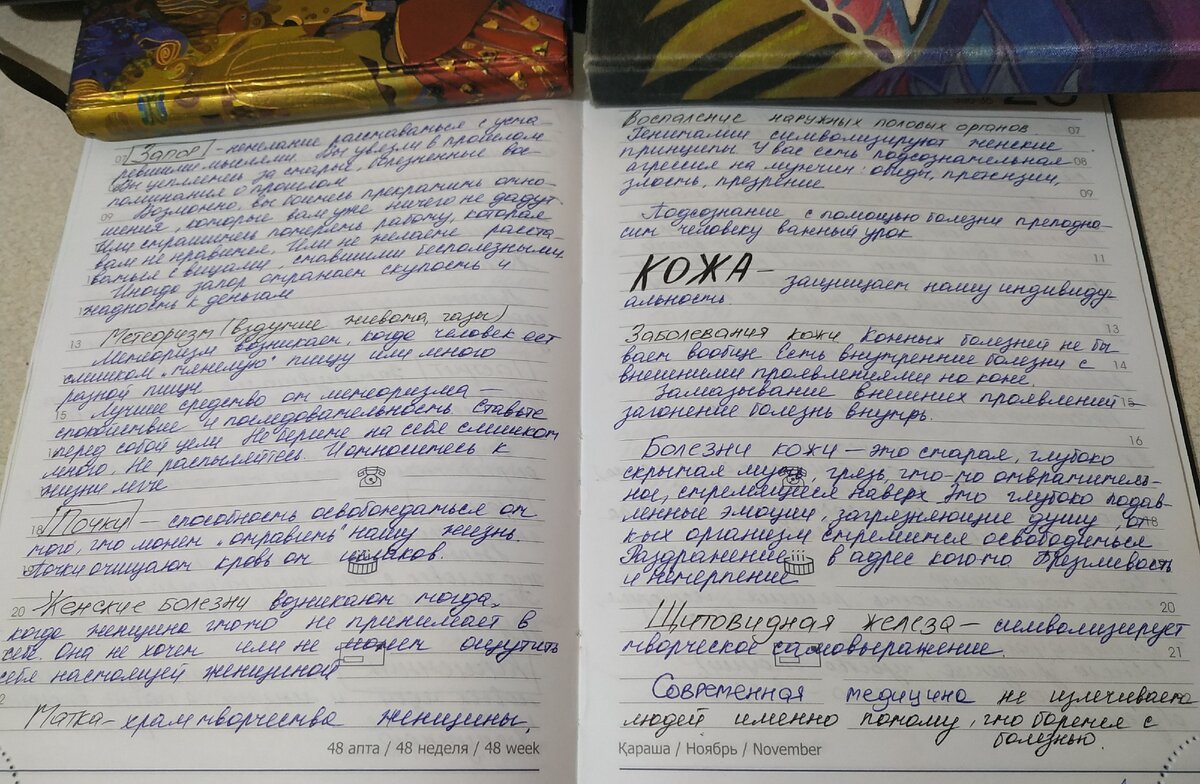 Запор - нежелание расставаться с уста-
ревшими мыслями. Вы увязли в прошлом
Вы цепляетесь за старые, болезненные вос-
поминания о прошлом
Возможно, вы боитесь прекратить отно-
шения, которые вам уже ничего не дадут
Или страшитесь потерять работу, которая
вам не нравится. Или не желаете расста-
ваться с вещами, ставшими бесполезными.
Иногда запор отражает скупость и
жадность к деньгам
Метеоризм (вздутие живота, газы)
Метеоризм возникает, когда человек ест
слишком „тяжелую" пищу или много
разной пищи
Лучшее средство от метеоризма –
спокойствие и последовательность. Ставьте
перед собой цели Не берите на себя слишком
много. Не распыляйтесь И относитесь к
жизни легче
Почки – способность освобождаться от
того, что может „отравить" нашу жизнь.
Почки очищают кровь от шлаков.
Женские болезни возникают тогда,
когда женщина что-то не принимает в
себе Она не хочет или не может ощутить
себя настоящей женщиной
Матка - храм творчества женщины,
48 апта / 48 неделя / 48 week
Воспаление наружных половых органов
Гениталии символизируют женские
принципы У вас есть подсознательная
агрессия на мужчин: обиды, претензии,
злость, презрение
Подсознание с помощью болезни преподно-
сит человеку важный урок
КОЖА – защищает нашу индивиду-
альность.
Заболевания кожи Кожных болезней не бы-
вает вообще Есть внутренние болезни с
внешними проявлениями на коже.
Замазывание внешних проявлений –
загонение болезнь внутрь.
Болезни кожи – это старая, глубоко
скрытая муть, грязь, что-то отвратитель-
ное, стремящиеся наверх Это глубоко подав-
ленные эмоции, загрязняющие душу, от
кых организм стремится освободиться
Раздражение в адрес кого-то Брезгливость
и нетерпение
Щитовидная железа – символизирует
творческое самовыражение.
Современная медицина не излечивает
людей именно потому, что борется с
болезнью.
Қараша / Ноябрь / November